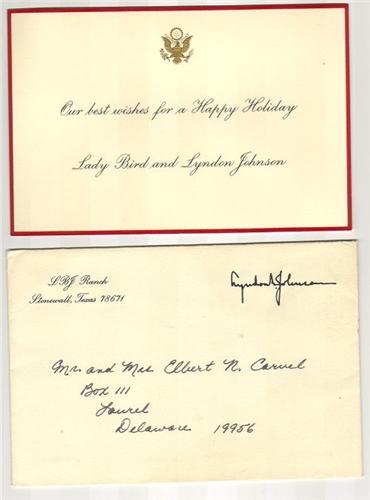 Our best wishes for a Happy Holiday
Lady Bird and Lyndon Johnson
LBJ Ranch
Stonewall, Texas 78671
Lyndon B Johnson
Mr. and Mrs Elbert N. Carvel
Box 111
Laurel
Delaware 19956